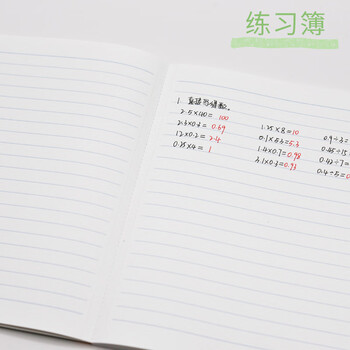 练习簿
1. 直接写得数.
2.5×40= 100
2.3×0.3= 0.69
12×0.2= 2.4
0.25×4= 1
1.25×8=10
0.1×53=5.3
1.4×0.7=0.98
3.1×0.3=0.93
0.9÷3=
0.45÷15
0.42÷7=
0.4÷5=